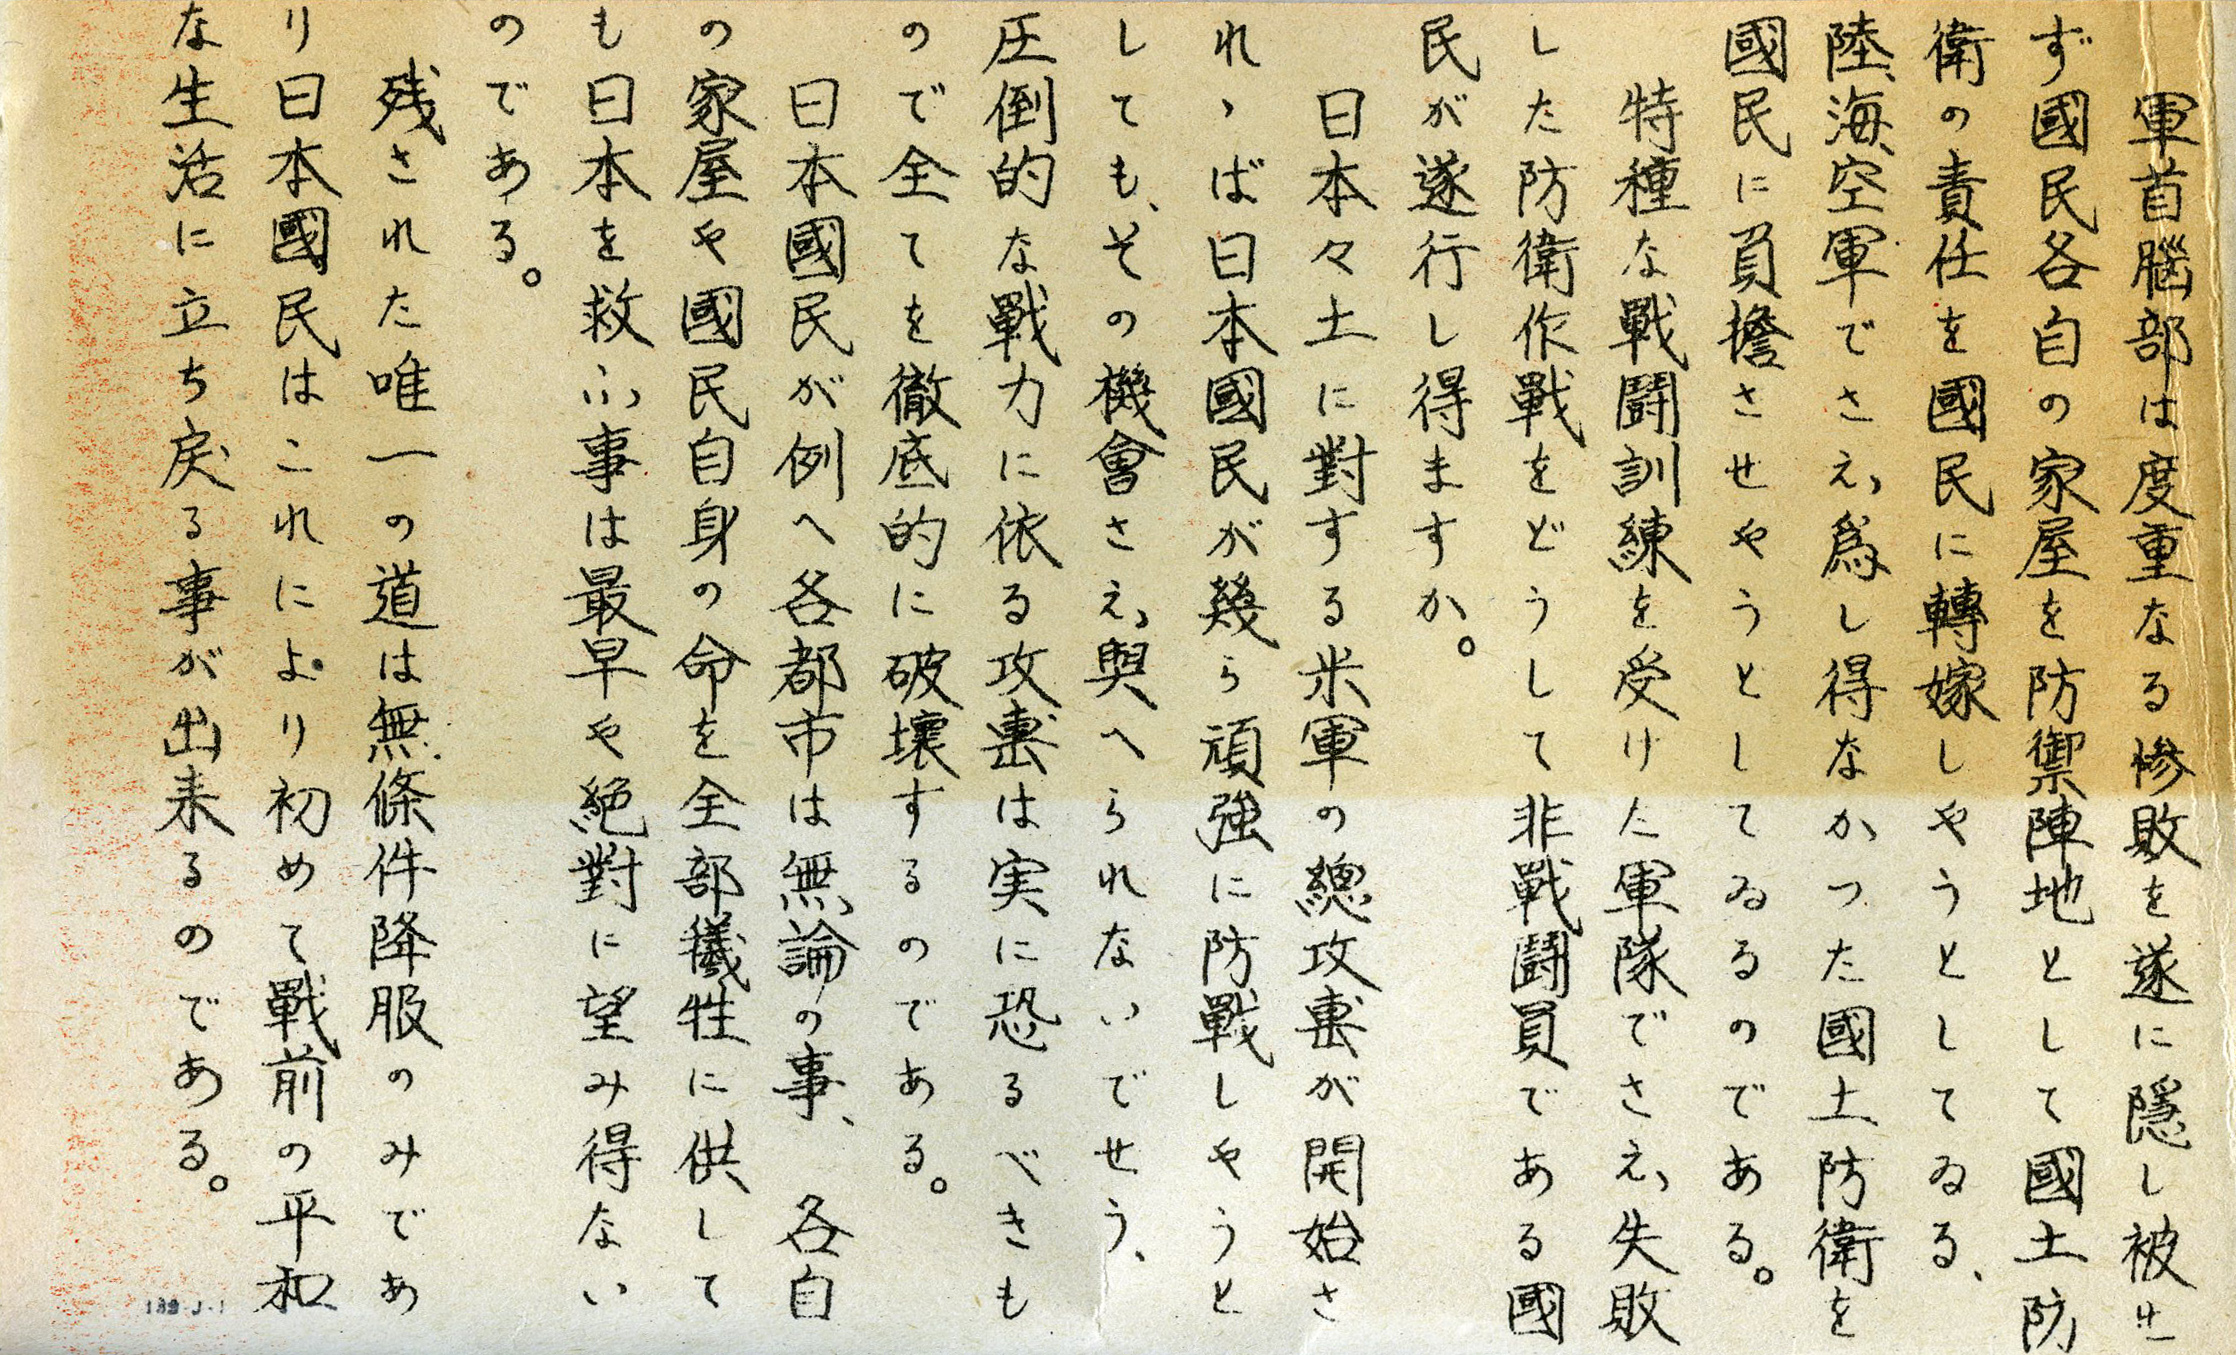 軍首腦部は度重なる惨敗を遂に隠し被せ
ず國民各自の家屋を防禦陣地として國土防
衛の責任を國民に轉嫁しやうとしてゐる、
陸、海、空軍でさえ爲し得なかつた國土防衛を
國民に負擔させやうとしてゐるのである。
特種な戰闘訓練を受けた軍隊でさえ失敗
した防衛作戰をどうして非戰闘員である國
民が遂行し得ますか。
日本々土に對する米軍の總攻撃が開始さ
れゝば日本國民が幾ら頑強に防戰しやうと
しても、その機會さえ與へられないでせう、
圧倒的な戰力に依る攻撃は実に恐るべきも
ので全てを徹底的に破壊するのである。
日本國民が例へ各都市は無論の事、各自
の家屋や國民自身の命を全部犠牲に供して
も日本を救ふ事は最早や絶對に望み得ない
のである。
残された唯一の道は無條件降服のみであ
り日本國民はこれにより初めて戰前の平和
な生活に立ち戻る事が出来るのである。